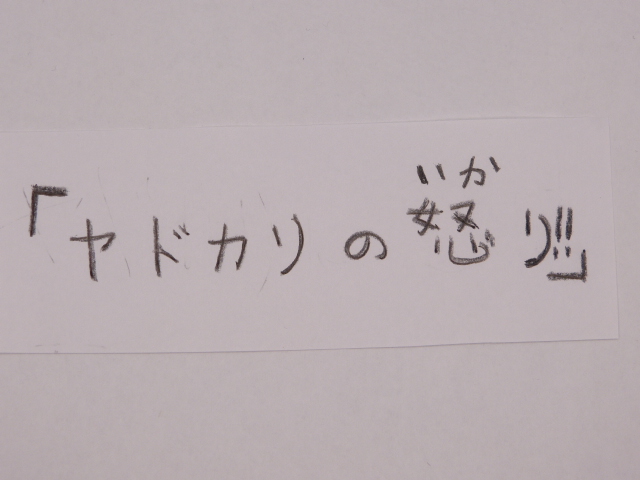 「ヤドカリの怒り!!」
いか